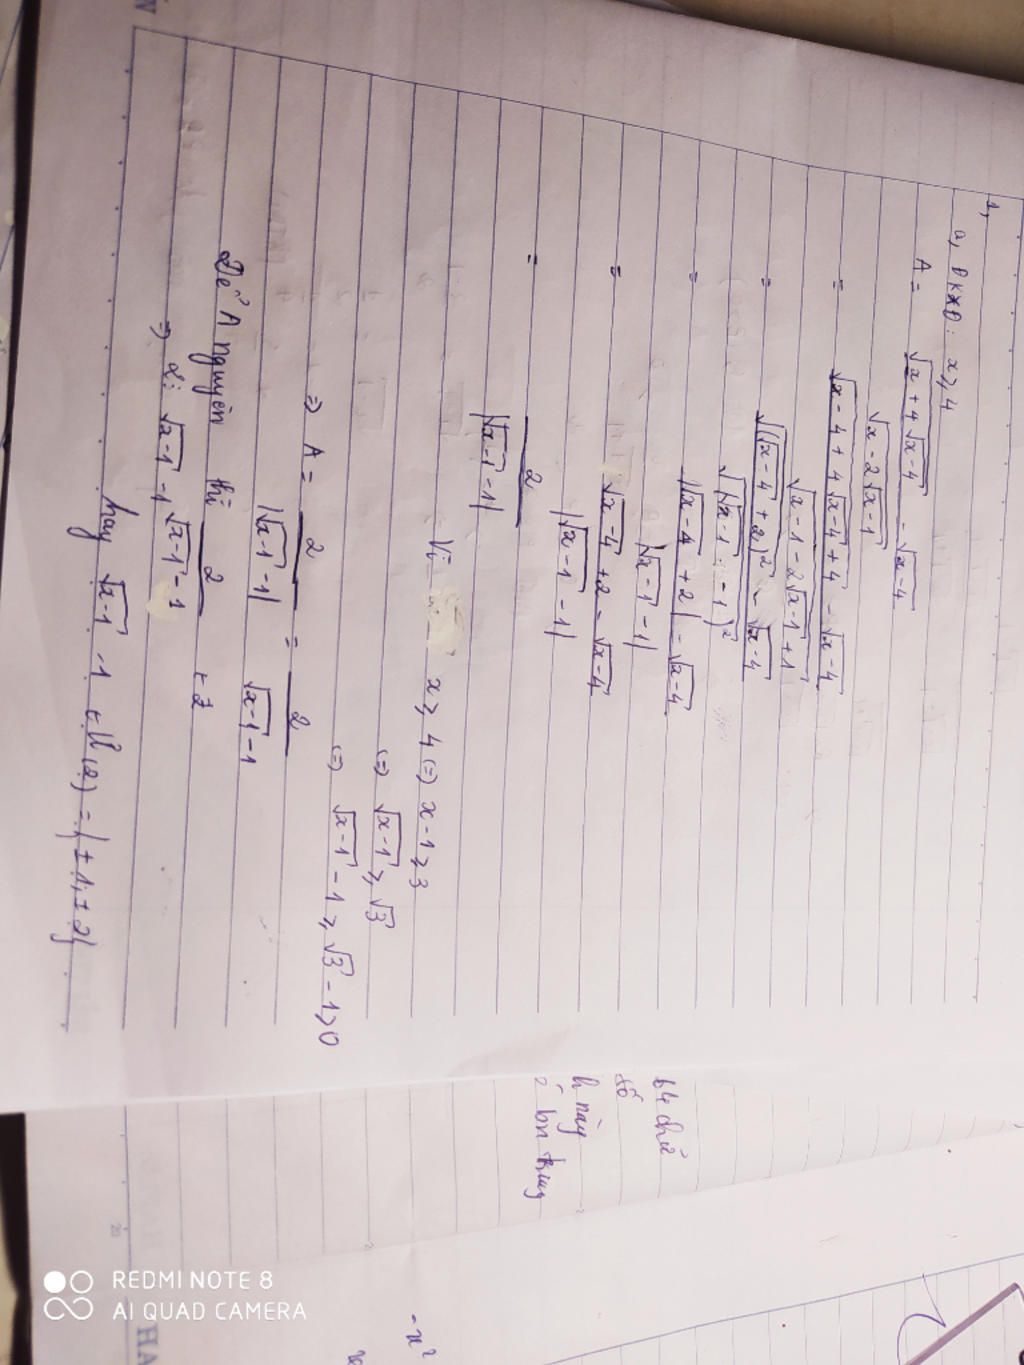 1,
a, ĐKXĐ: x ⩾ 4
A = (√(x + 4√(x-4)) - √(x-4)) / √(x - 2√(x-1))
= (√(x-4+4√(x-4)+4) - √(x-4)) / √(x-1-2√(x-1)+1)
= (√((√(x-4)+2)²) - √(x-4)) / √((√(x-1) - 1)²)
= (|√(x-4)+2| - √(x-4)) / |√(x-1) - 1|
= (√(x-4)+2-√(x-4)) / |√(x-1) - 1|
= 2 / |√(x-1) - 1|
Vì x ⩾ 4 (=) x-1 ⩾ 3
(=) √(x-1) ⩾ √3
(=) √(x-1) - 1 ⩾ √3 - 1 > 0
⇒ A = 2 / |√(x-1) - 1| = 2 / (√(x-1) - 1)
Để A nguyên thì 2 / (√(x-1) - 1) ∈ Z
⇒ 2 ⋮ √(x-1) - 1
hay √(x-1) - 1 ∈ Ư(2) = {±1, ±2}
64 chữ
số
h này
bn
-x²
x
REDMI NOTE 8
AI QUAD CAMERA
HA